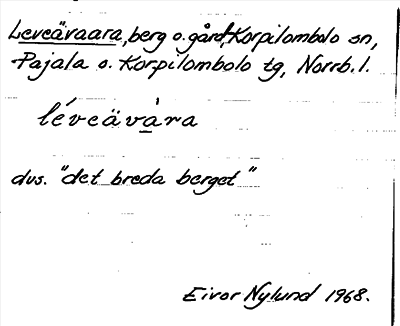 Leveävaara, berg o. gård, Korpilombolo sn,
Pajala o. Korpilombolo tg, Norrb. l.
léveävàra
dvs. "det breda berget"
Eivor Nylund 1968.